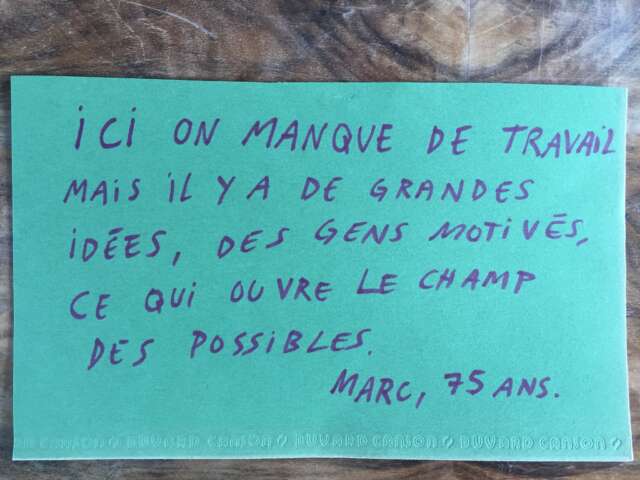 iCi ON MANQUE DE TRAVAiL
MAiS iL Y A DE GRANDES
iDÉES, DES GENS MOTiVÉS,
CE QUi OUVRE LE CHAMP
DES POSSiBLES.
MARC, 75 ANS.
CANSON DUVARD CANSON DUVARD CANSON